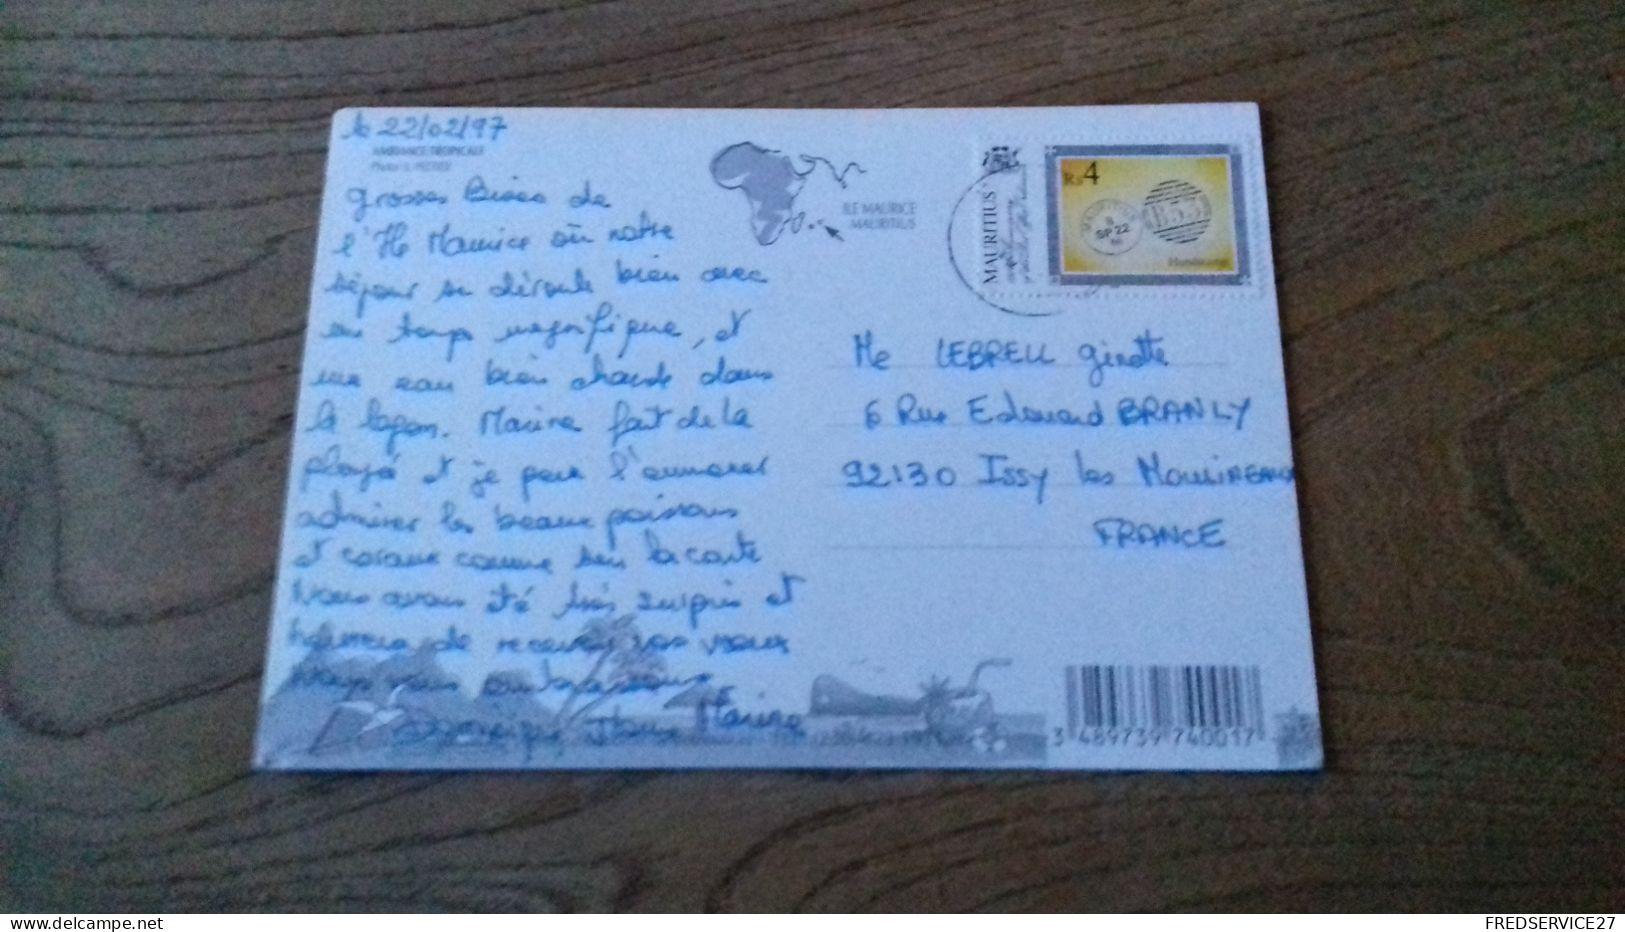 le 22/02/97
AMBIANCE TROPICALE
Photo
grosses Bises de
l'Ile Maurice où notre
séjour se déroule bien avec
un temps magnifique, et
une eau bien chaude dans
le lagon. Marine fait de la
plongé et je peux l'emmener
admirer les beaux poissons
et coraux comme sur la carte
Nous avons été très surpris et
heureux de recevoir vos vœux
Nous vous embrassons
Marine
ILE MAURICE
MAURITIUS
MAURITIUS
Rs4
SP 22
B53
Me LEBRELL ginette
6 Rue Edouard BRANLY
92130 Issy les MouliNEAUX
FRANCE
3 489739 740017
www.delcampe.net
FREDSERVICE27